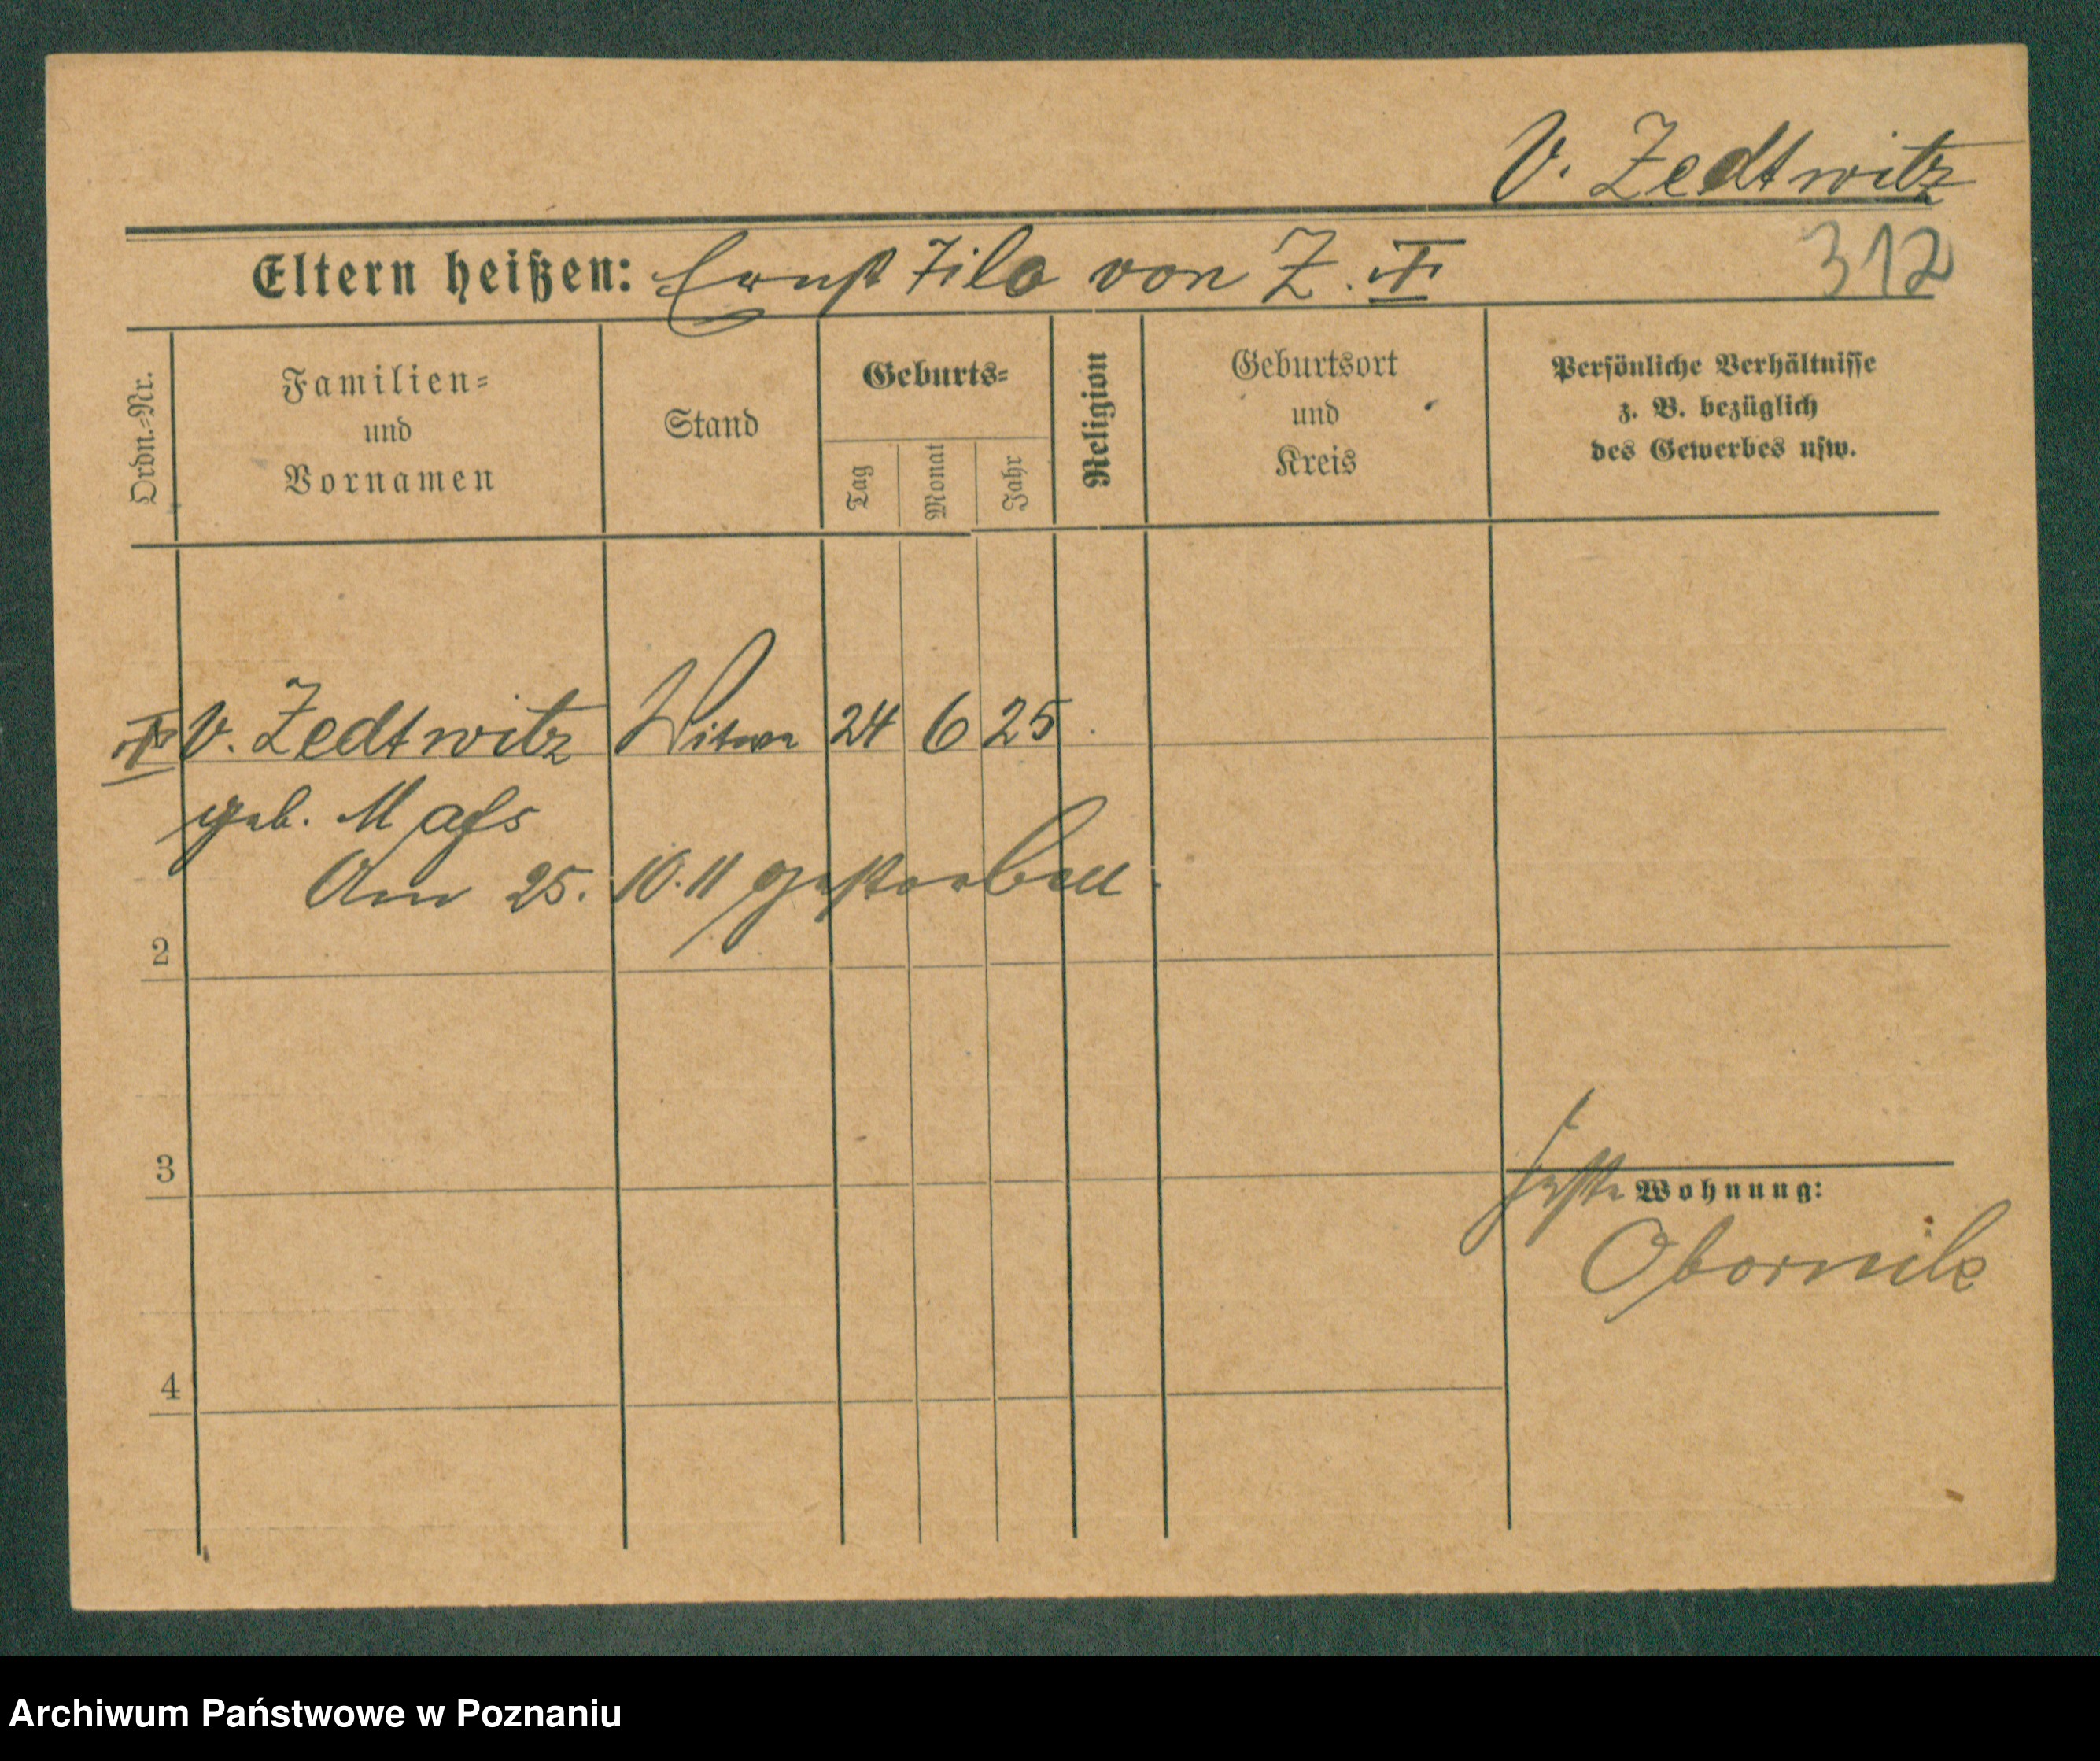 V. Zedtwitz
312
Eltern heißen: Ernst Tilo von Z. †
Ordn.-Nr.
Familien-
und
Vornamen
Stand
Geburts-
Tag
Monat
Jahr
Religion
Geburtsort
und
Kreis
Persönliche Verhältnisse
z. B. bezüglich
des Gewerbes usw.
† V. Zedtwitz Witwe 24 6 25
geb. Mass
Am 25. 10. 11 gestorben.
2
3
Wohnung:
Obornik
4
Archiwum Państwowe w Poznaniu